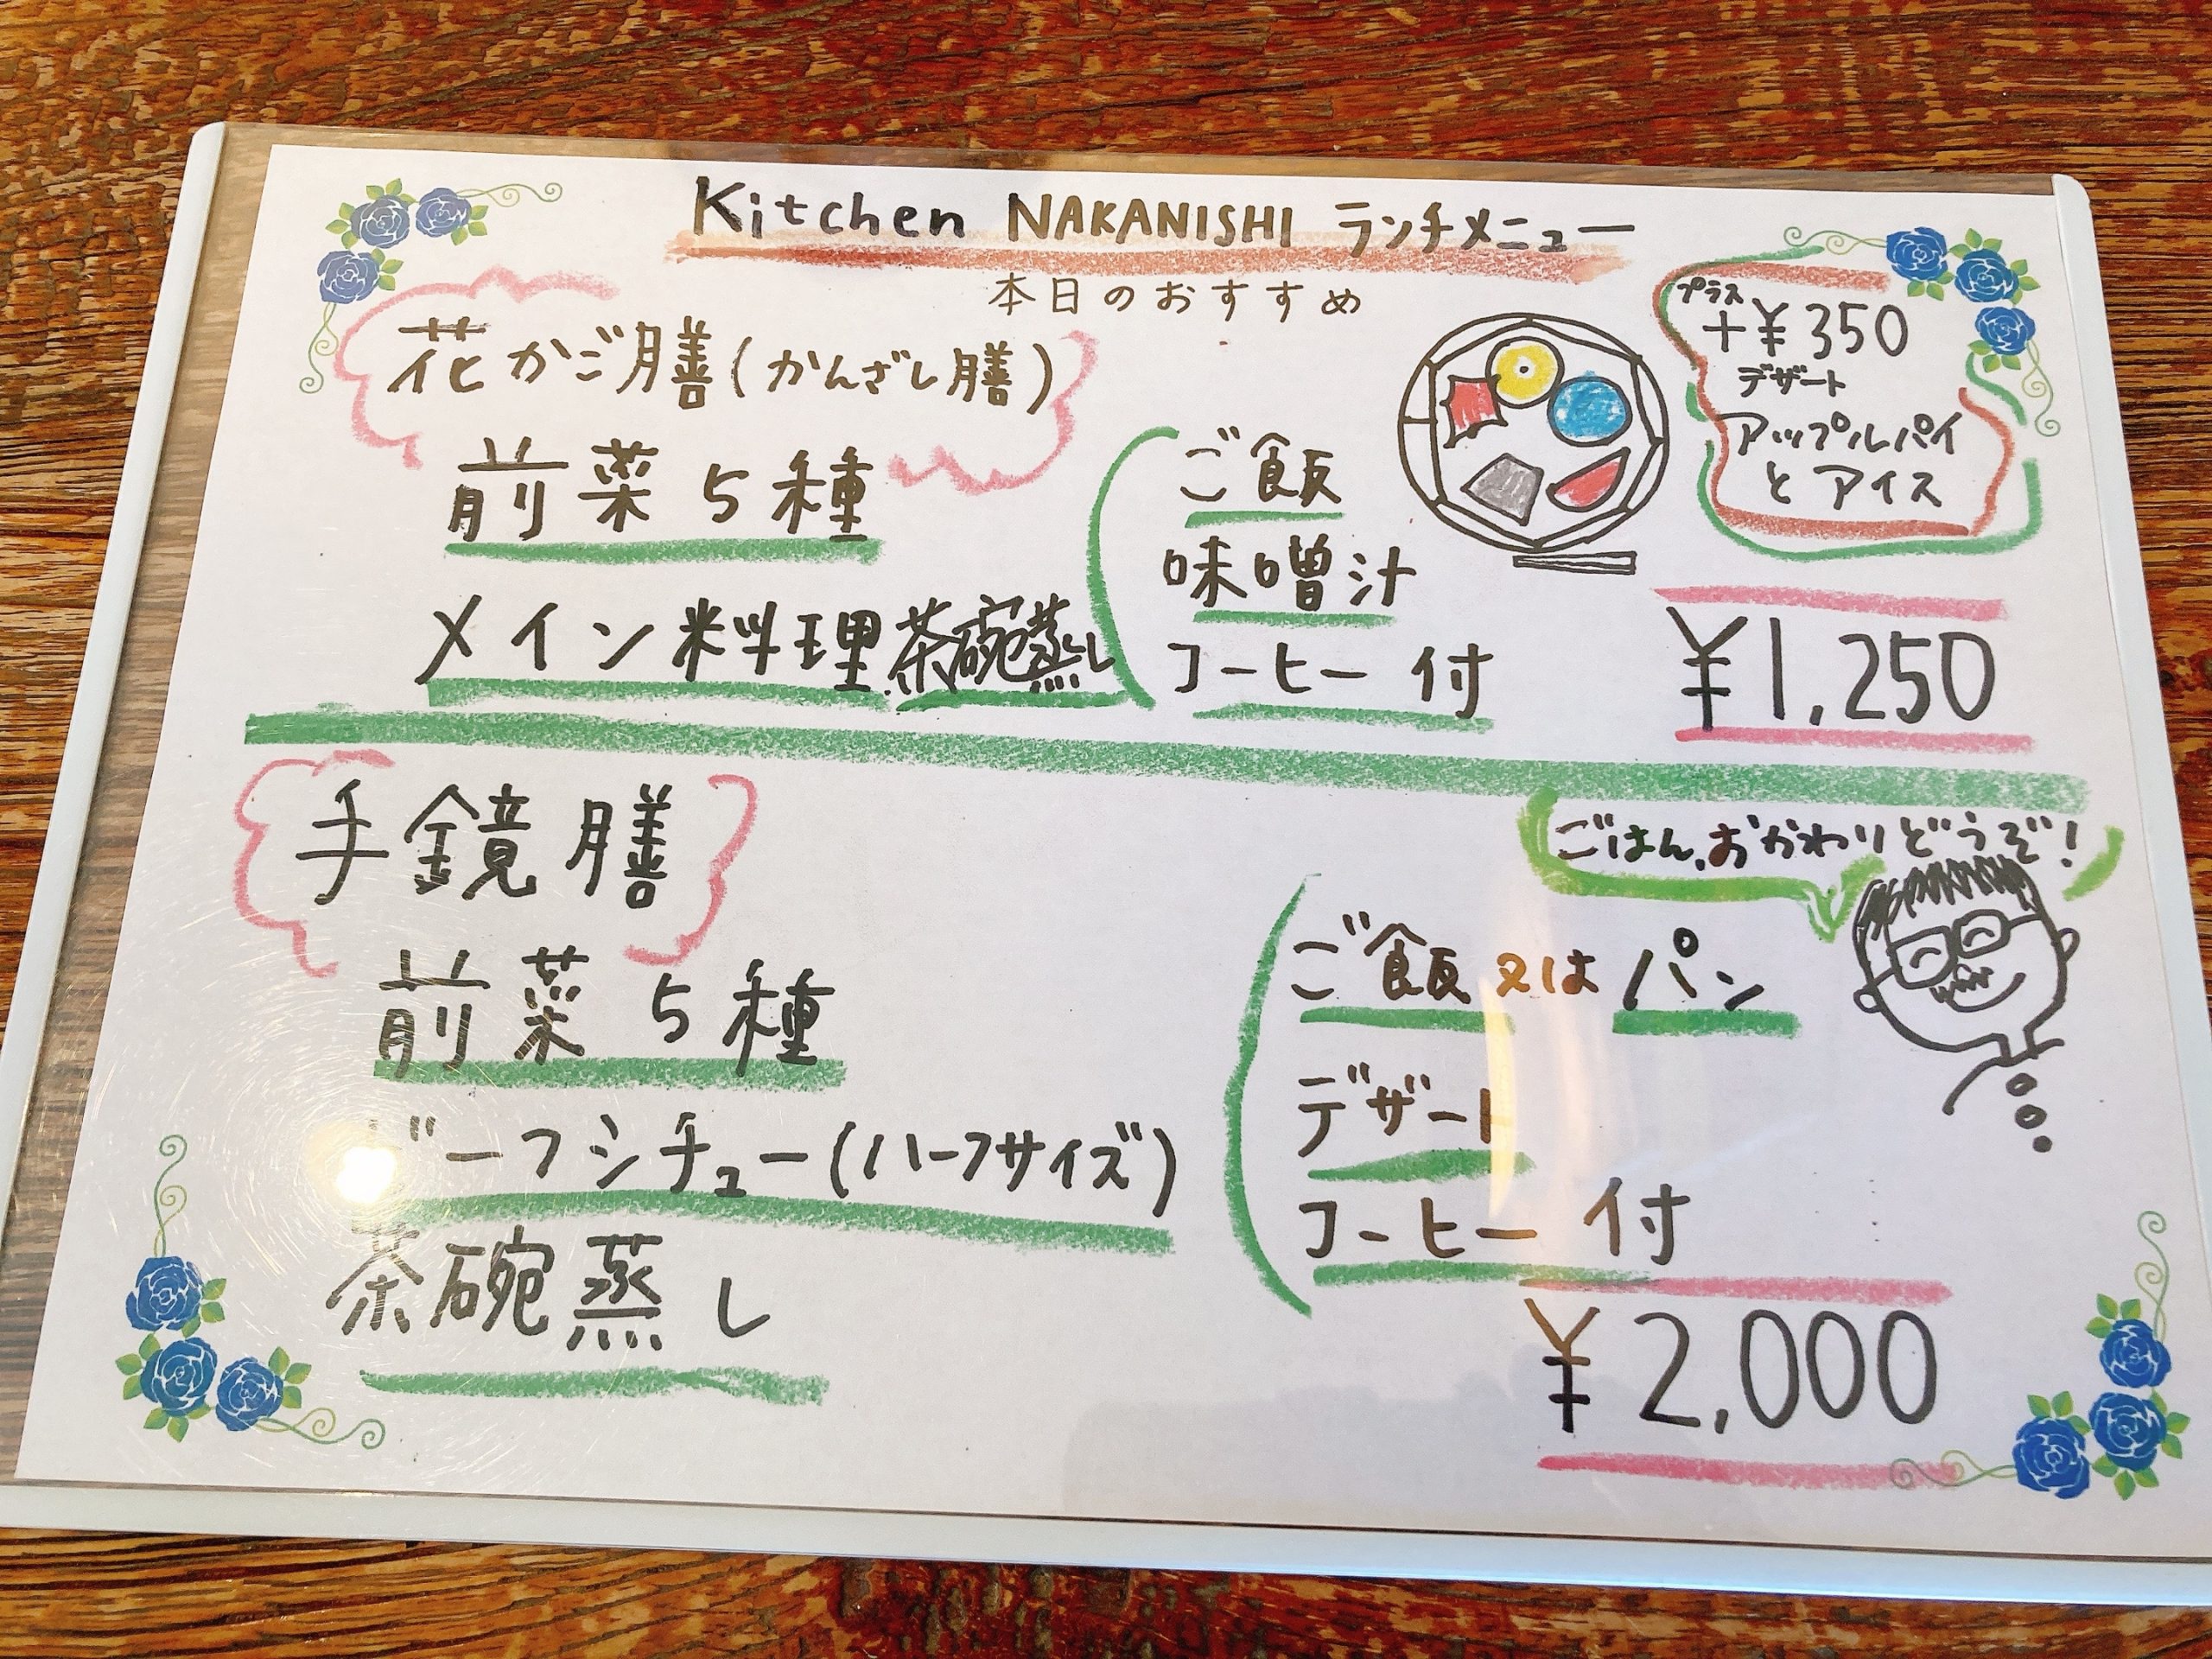 Kitchen NAKANISHI ランチメニュー
本日のおすすめ
花かご膳(かんざし膳)
前菜5種
メイン料理 茶碗蒸し
ご飯
味噌汁
コーヒー付
プラス
+¥350
デザート
アップルパイ
とアイス
¥1,250
手鏡膳
前菜5種
ビーフシチュー(ハーフサイズ)
茶碗蒸し
ごはん、おかわりどうぞ!
ご飯又はパン
デザート
コーヒー付
¥2,000